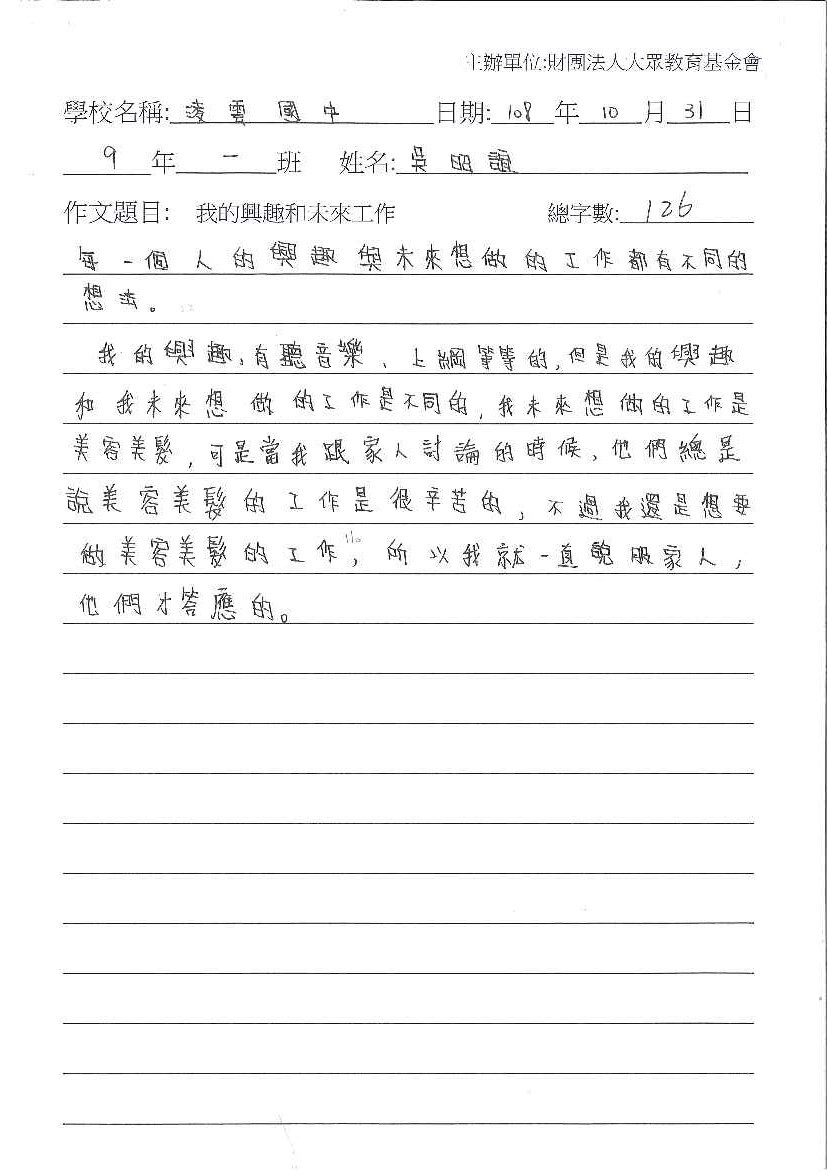 主辦單位:財團法人大眾教育基金會
學校名稱: 凌雲國中 日期: 108 年 10 月 31 日
9 年 一 班 姓名: 吳昭誼
作文題目: 我的興趣和未來工作 總字數: 126
每一個人的興趣與未來想做的工作都有不同的
想法。
我的興趣,有聽音樂、上網等等的,但是我的興趣
和我未來想做的工作是不同的,我未來想做的工作是
美容美髮,可是當我跟家人討論的時候,他們總是
說美容美髮的工作是很辛苦的,不過我還是想要
做美容美髮的工作,所以我就一直說服家人,
他們才答應的。